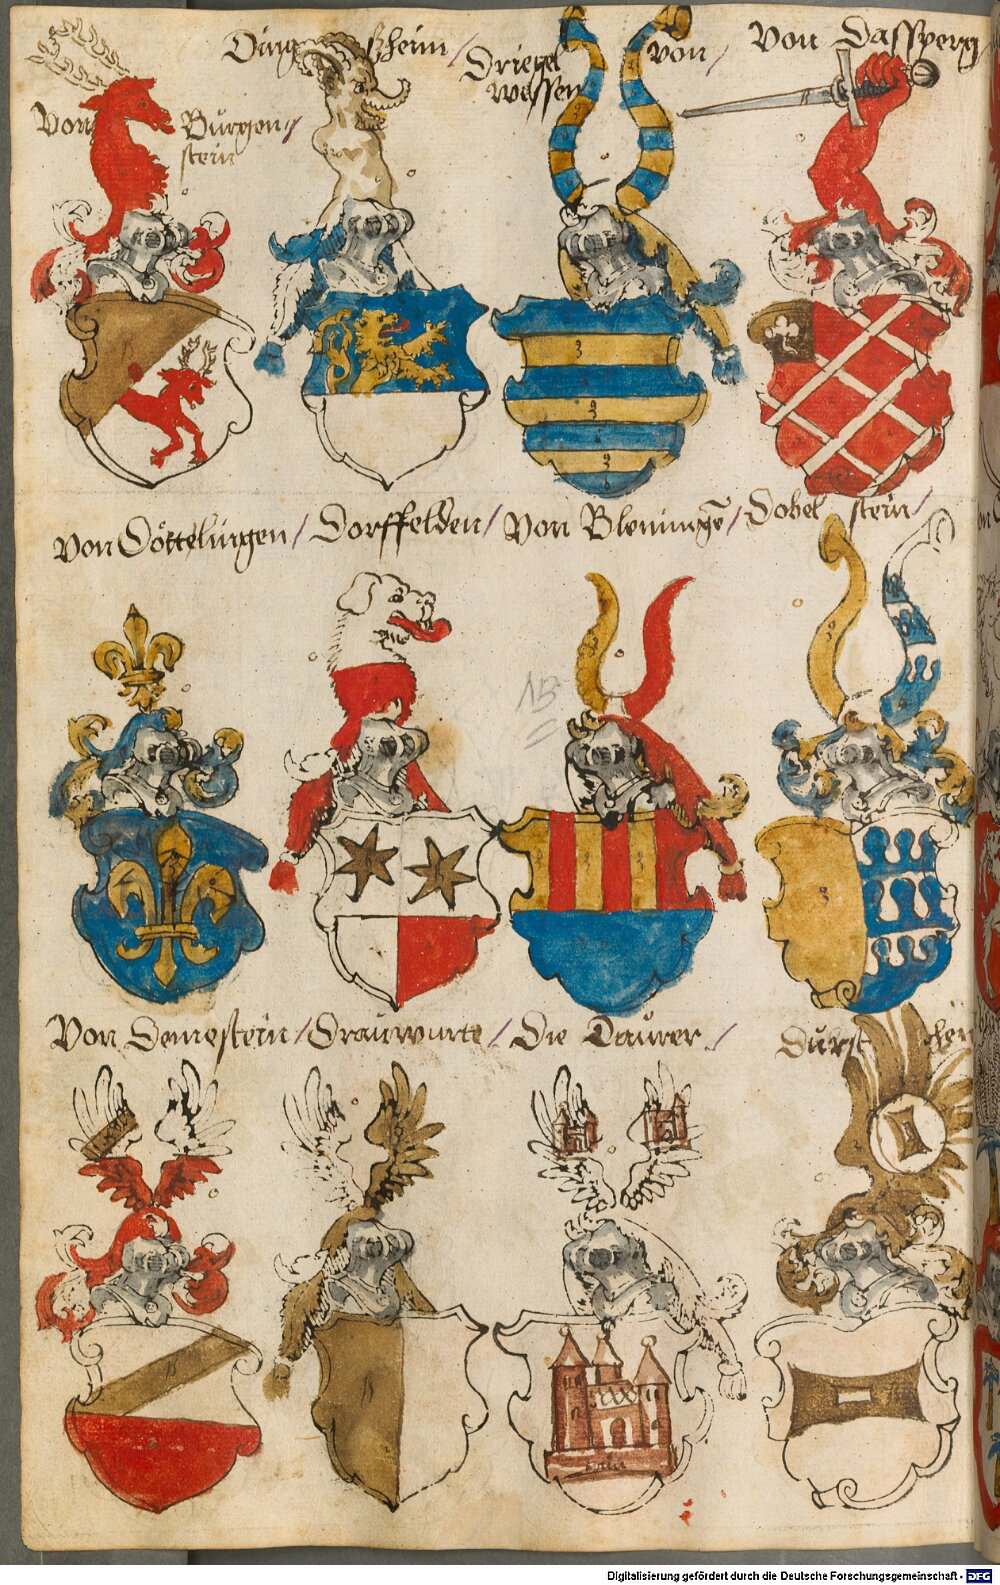 Von Burgen/
stein
Dingßheim/
Driegel von/
wassen
Von Dassperg/
Von Döttelingen/ Dorffelden/ Von Bleninge/ Dobel stein/
Von Demestein/ Drauwurte/ Die Daurer/
AB
B
B
Digitalisierung gefördert durch die Deutsche Forschungsgemeinschaft - DFG